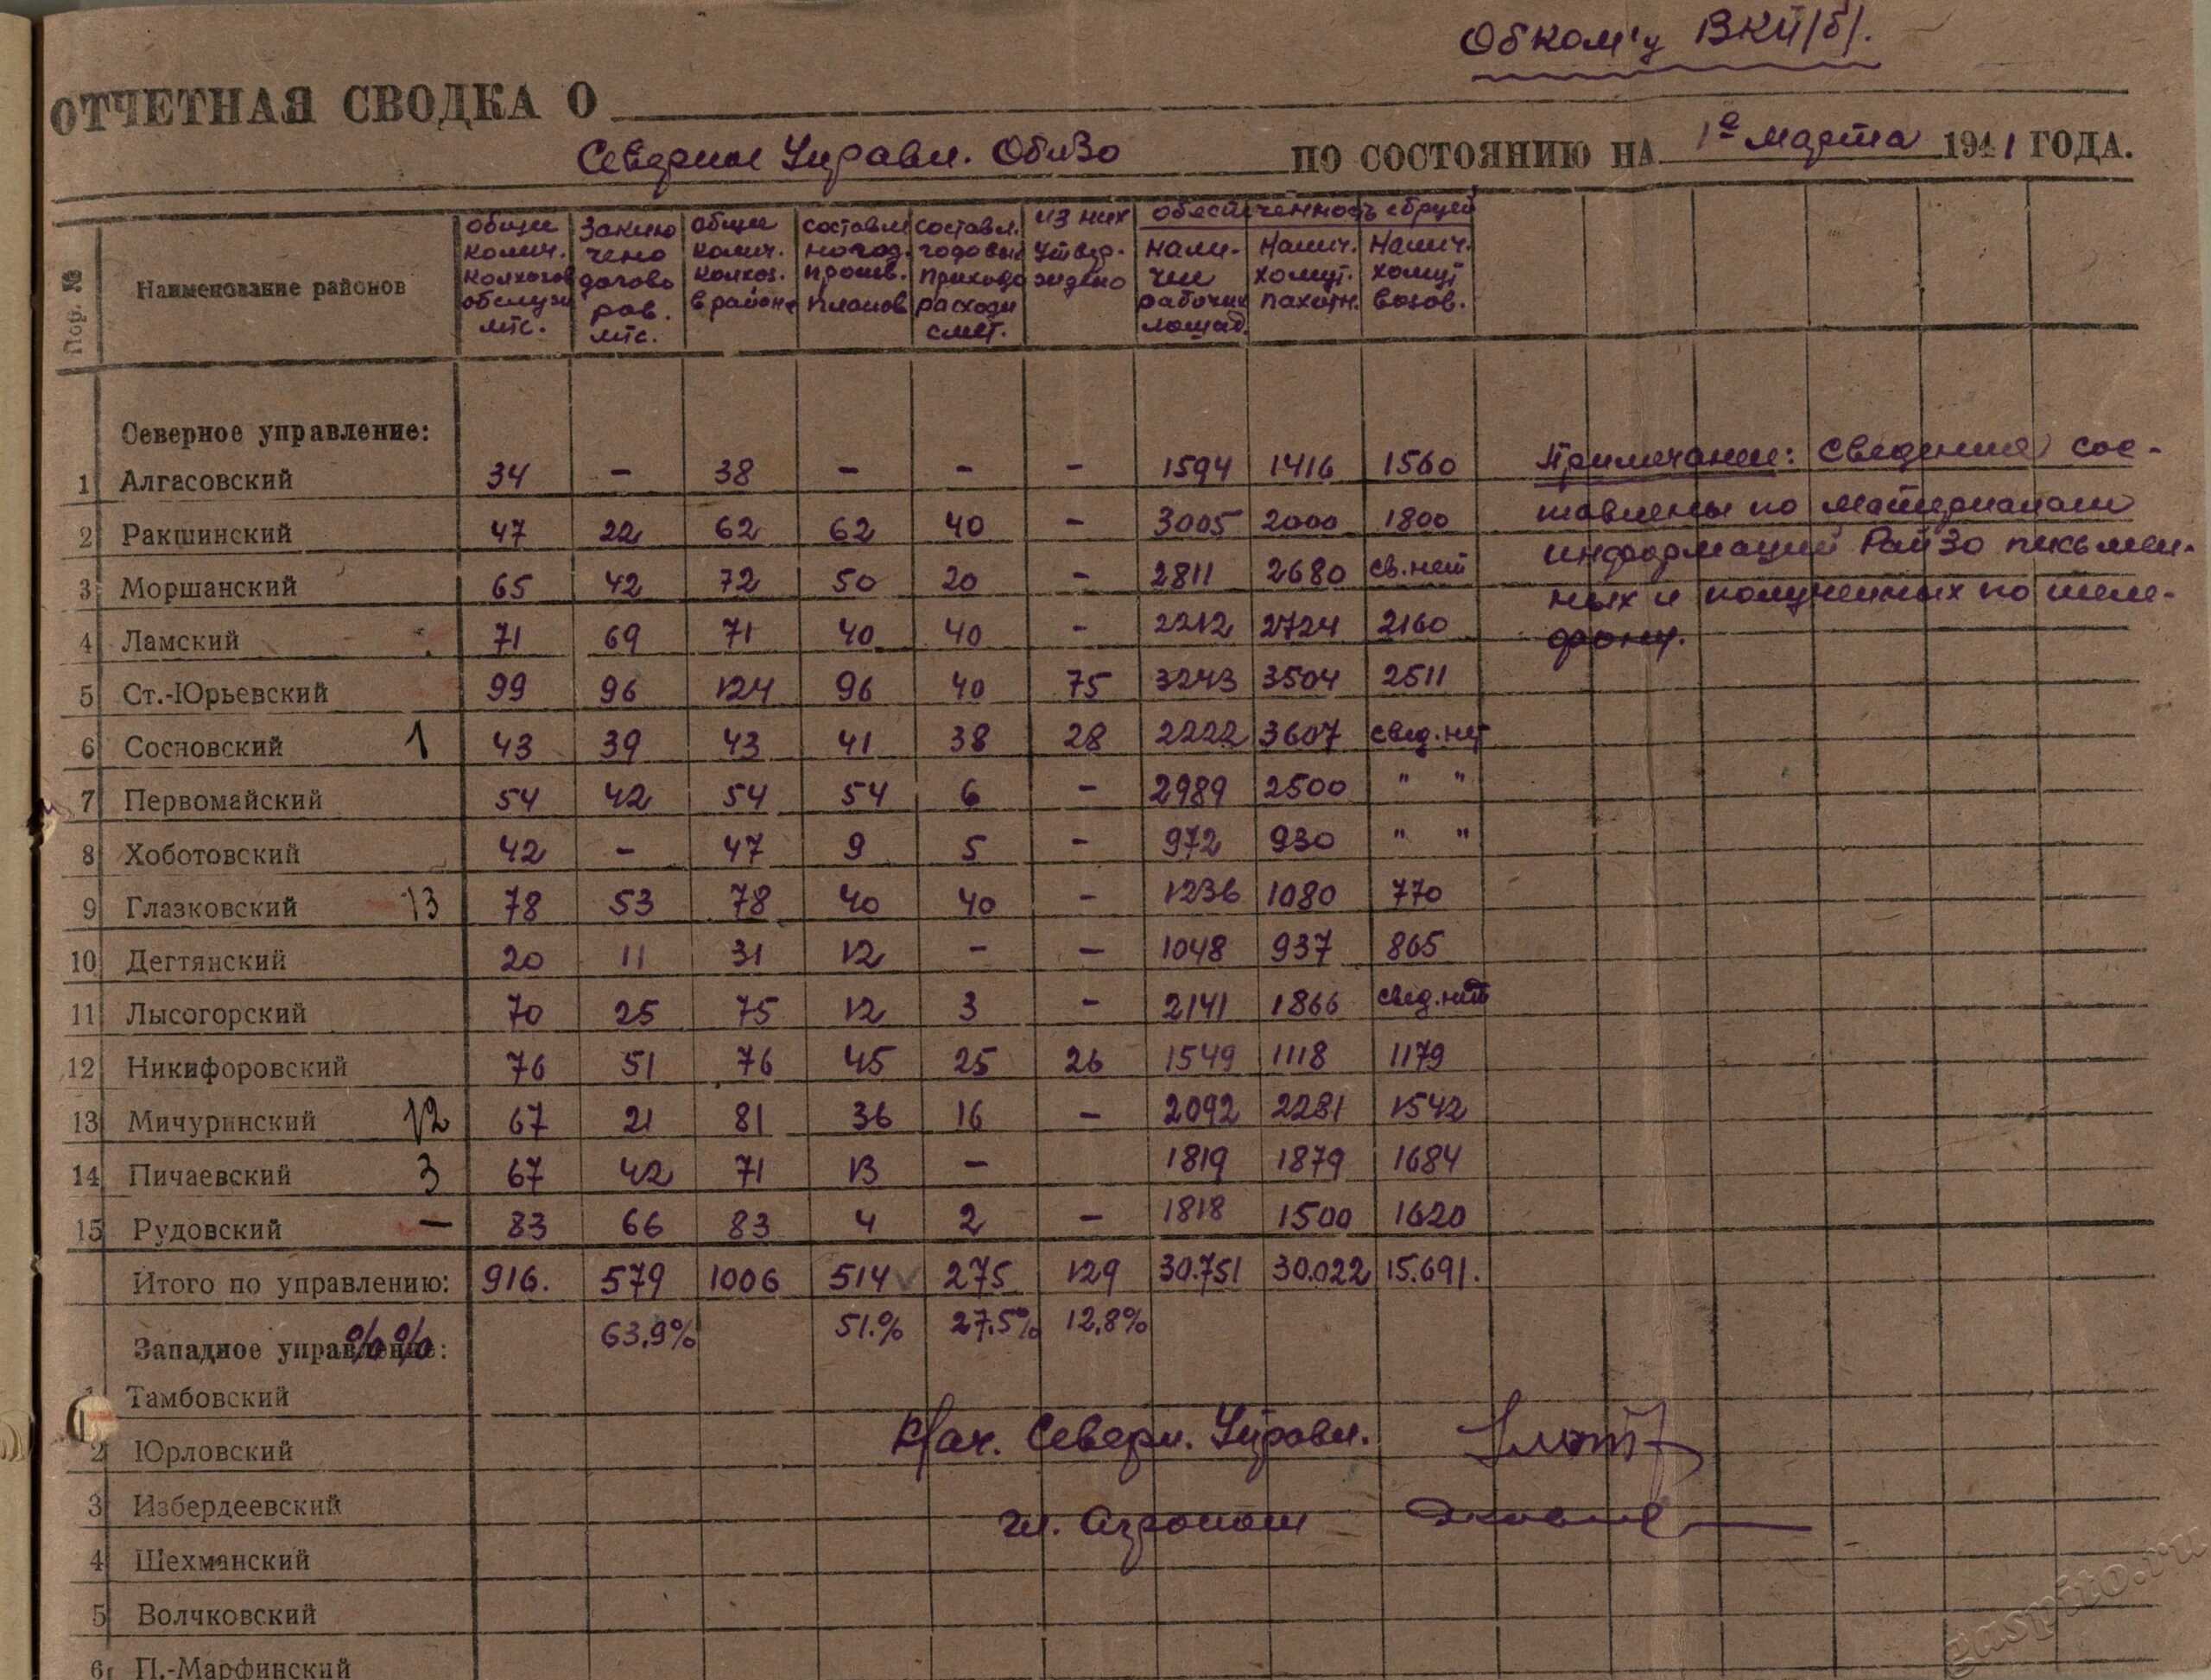 Обком'у ВКП/б/.
ОТЧЕТНАЯ СВОДКА О
Северное Управл. ОблЗо ПО СОСТОЯНИЮ НА 1е марта 1941 ГОДА.
Пор. № Наименование районов общее колич. колхозов обслуж мтс. Заклю чено догово ров. мтс. общее колич. колхоз. в районе составле но год. произв. планов составл. годовых приходо расходн смет. из них утвер- ждено обеспеченность сбруей нали- чие рабочих лошад. Налич. хомут. пахотн. Налич. хомут возов.
Северное управление:
1 Алгасовский 34 - 38 - - - 1594 1416 1560
2 Ракшинский 47 22 62 62 40 - 3005 2000 1800
3 Моршанский 65 42 72 50 20 - 2811 2680 св.нет
4 Ламский 71 69 71 40 40 - 2212 2724 2160
5 Ст.-Юрьевский 99 96 124 96 40 75 3243 3504 2511
6 Сосновский 1 43 39 43 41 38 28 2222 3607 свед.нет
7 Первомайский 54 42 54 54 6 - 2989 2500 " "
8 Хоботовский 42 - 47 9 5 - 972 930 " "
9 Глазковский 13 78 53 78 40 40 - 1236 1080 770
10 Дегтянский 20 11 31 12 - - 1048 937 865
11 Лысогорский 70 25 75 12 3 - 2141 1866 свед.нет
12 Никифоровский 76 51 76 45 25 26 1549 1118 1179
13 Мичуринский 12 67 21 81 36 16 - 2092 2281 1542
14 Пичаевский 3 67 42 71 13 - 1819 1879 1684
15 Рудовский - 83 66 83 4 2 - 1818 1500 1620
Итого по управлению: 916. 579 1006 514 275 129 30.751 30.022 15.691.
%% 63,9% 51.% 27,5% 12,8%
Примечание: Сведения сос-
тавлены по материалам
информаций РайЗо письмен-
ных и полученных по теле-
фону.
Западное управление:
1 Тамбовский
2 Юрловский
3 Избердеевский
4 Шехманский
5 Волчковский
6 П.-Марфинский
Нач. Северн. Управл.
гл. Агроном
gaspito.ru